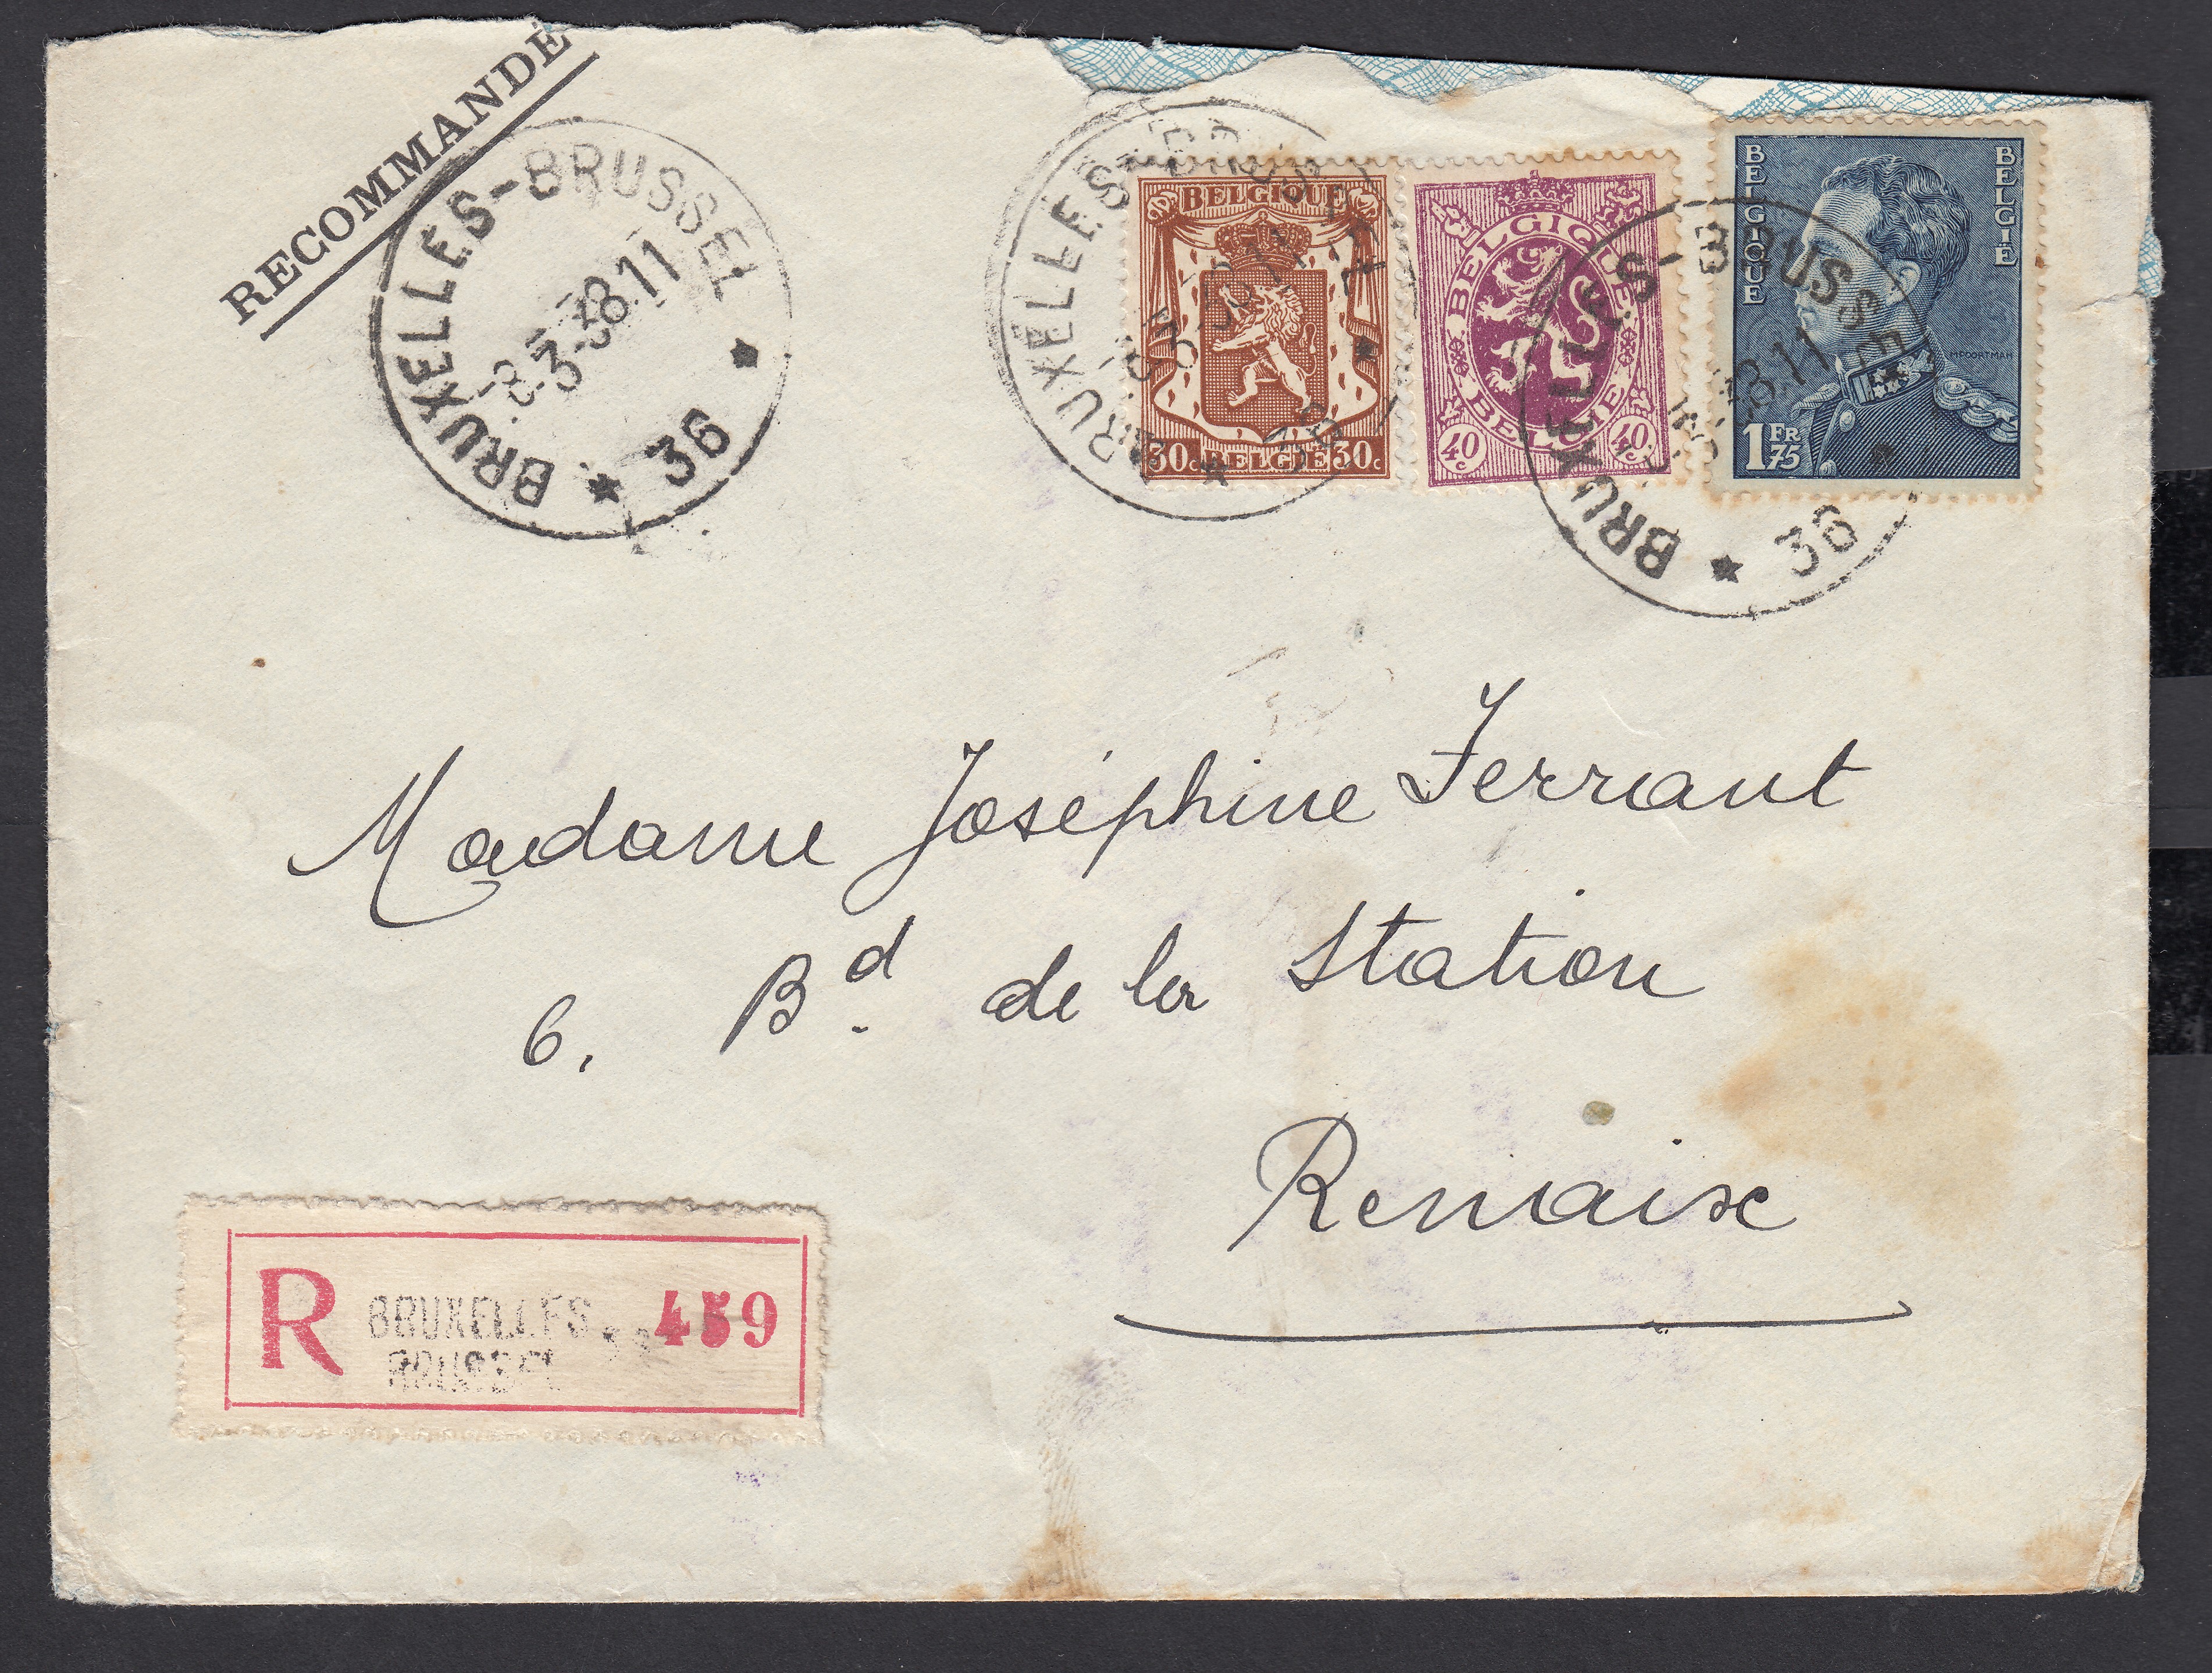 RECOMMANDÉ
BRUXELLES-BRUSSEL
-3-38.11
36
BRUXELLES-BRUSSEL
36
BELGIQUE
30c BELGIË 30c
BELGIQUE
BELGIË
40c 40c
BELGIQUE
BELGIË
M POORTMAN
1FR 75
BRUXELLES-BRUSSEL
8.11
36
Madame Joséphine Ferrant
6. Bd. de la Station
Renaix
R BRUXELLES 459
BRUSSEL